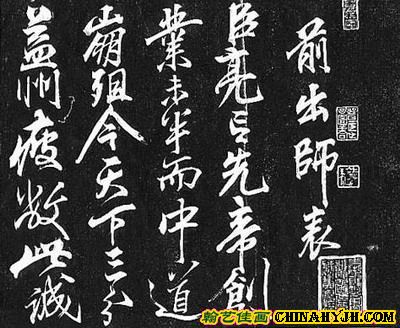 前出師表
臣亮言先帝創
業未半而中道
崩殂今天下三分
益州疲敝此誠
翰艺佳画 CHINAHYJH.COM